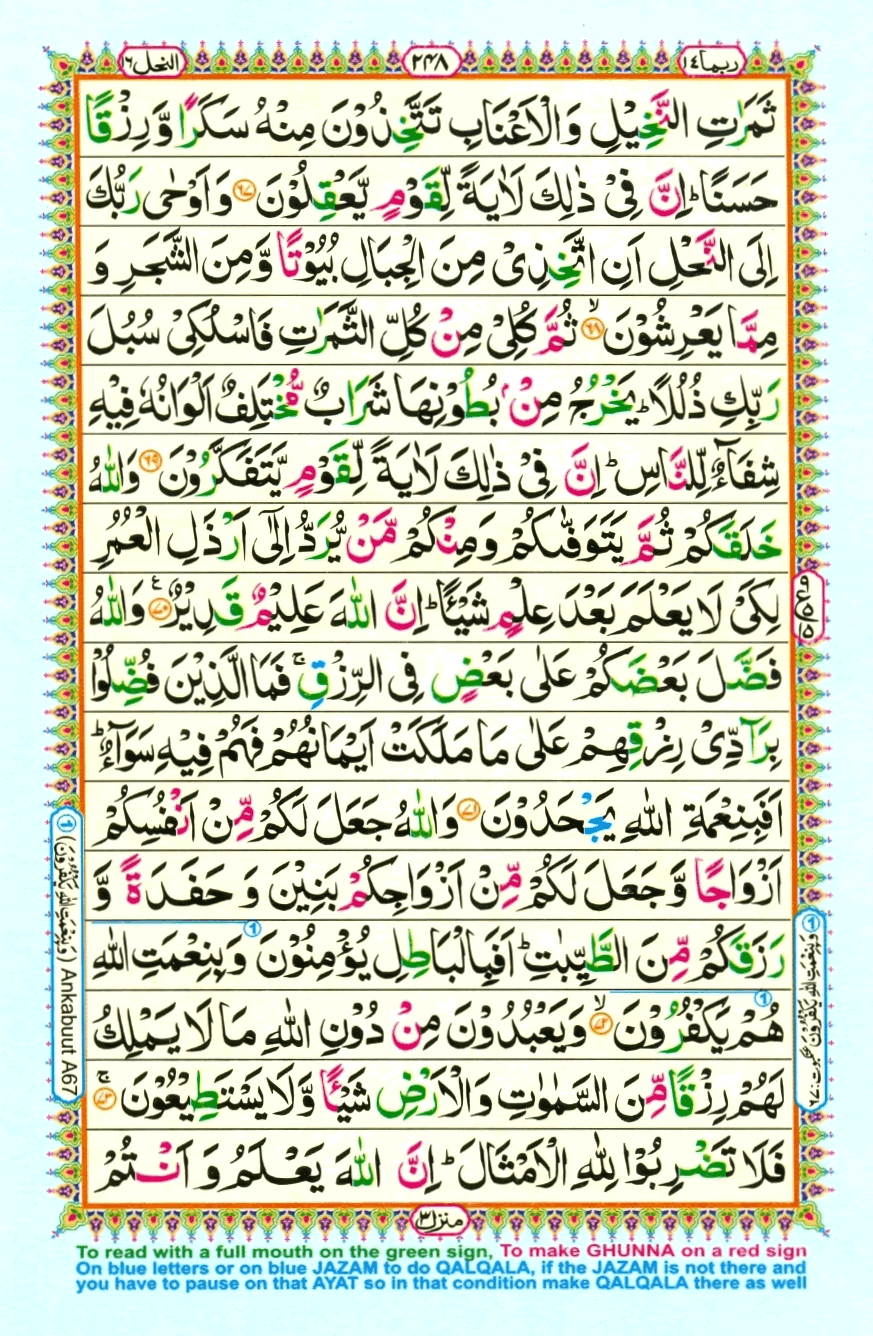 النحل ١٦
٢٤٨
ربما ١٤
ثَمَرٰتِ النَّخِيْلِ وَالْاَعْنَابِ تَتَّخِذُوْنَ مِنْهُ سَكَرًا وَّرِزْقًا
حَسَنًا ؕ اِنَّ فِيْ ذٰلِكَ لَاٰيَةً لِّقَوْمٍ يَّعْقِلُوْنَ ﴿٦٧﴾ وَاَوْحٰى رَبُّكَ
اِلَى النَّحْلِ اَنِ اتَّخِذِيْ مِنَ الْجِبَالِ بُيُوْتًا وَّمِنَ الشَّجَرِ وَ
مِمَّا يَعْرِشُوْنَ ۙ﴿٦٨﴾ ثُمَّ كُلِيْ مِنْ كُلِّ الثَّمَرٰتِ فَاسْلُكِيْ سُبُلَ
رَبِّكِ ذُلُلًا ؕ يَخْرُجُ مِنْۢ بُطُوْنِهَا شَرَابٌ مُّخْتَلِفٌ اَلْوَانُهٗ فِيْهِ
شِفَآءٌ لِّلنَّاسِ ؕ اِنَّ فِيْ ذٰلِكَ لَاٰيَةً لِّقَوْمٍ يَّتَفَكَّرُوْنَ ﴿٦٩﴾ وَاللّٰهُ
خَلَقَكُمْ ثُمَّ يَتَوَفّٰىكُمْ وَمِنْكُمْ مَّنْ يُّرَدُّ اِلٰٓى اَرْذَلِ الْعُمُرِ
لِكَيْ لَا يَعْلَمَ بَعْدَ عِلْمٍ شَيْئًا ؕ اِنَّ اللّٰهَ عَلِيْمٌ قَدِيْرٌ ﴿٧٠﴾ وَاللّٰهُ
فَضَّلَ بَعْضَكُمْ عَلٰى بَعْضٍ فِى الرِّزْقِ ۚ فَمَا الَّذِيْنَ فُضِّلُوْا
بِرَآدِّيْ رِزْقِهِمْ عَلٰى مَا مَلَكَتْ اَيْمَانُهُمْ فَهُمْ فِيْهِ سَوَآءٌ ؕ
اَفَبِنِعْمَةِ اللّٰهِ يَجْحَدُوْنَ ﴿٧١﴾ وَاللّٰهُ جَعَلَ لَكُمْ مِّنْ اَنْفُسِكُمْ
اَزْوَاجًا وَّجَعَلَ لَكُمْ مِّنْ اَزْوَاجِكُمْ بَنِيْنَ وَ حَفَدَةً وَّ
رَزَقَكُمْ مِّنَ الطَّيِّبٰتِ ؕ اَفَبِالْبَاطِلِ يُؤْمِنُوْنَ وَبِنِعْمَتِ اللّٰهِ
هُمْ يَكْفُرُوْنَ ۙ﴿٧٢﴾ وَيَعْبُدُوْنَ مِنْ دُوْنِ اللّٰهِ مَا لَا يَمْلِكُ
لَهُمْ رِزْقًا مِّنَ السَّمٰوٰتِ وَالْاَرْضِ شَيْئًا وَّلَا يَسْتَطِيْعُوْنَ ۚ﴿٧٣﴾
فَلَا تَضْرِبُوْا لِلّٰهِ الْاَمْثَالَ ؕ اِنَّ اللّٰهَ يَعْلَمُ وَ اَنْتُمْ
منزل ٣
ع ٩ ٥ ١٥
① وَبِنِعْمَتِ اللّٰهِ يَكْفُرُوْنَ عنكبوت: ٦٧
① (وَبِنِعْمَتِ اللّٰهِ يَكْفُرُوْنَ) Ankabuut A67
To read with a full mouth on the green sign, To make GHUNNA on a red sign
On blue letters or on blue JAZAM to do QALQALA, if the JAZAM is not there and
you have to pause on that AYAT so in that condition make QALQALA there as well